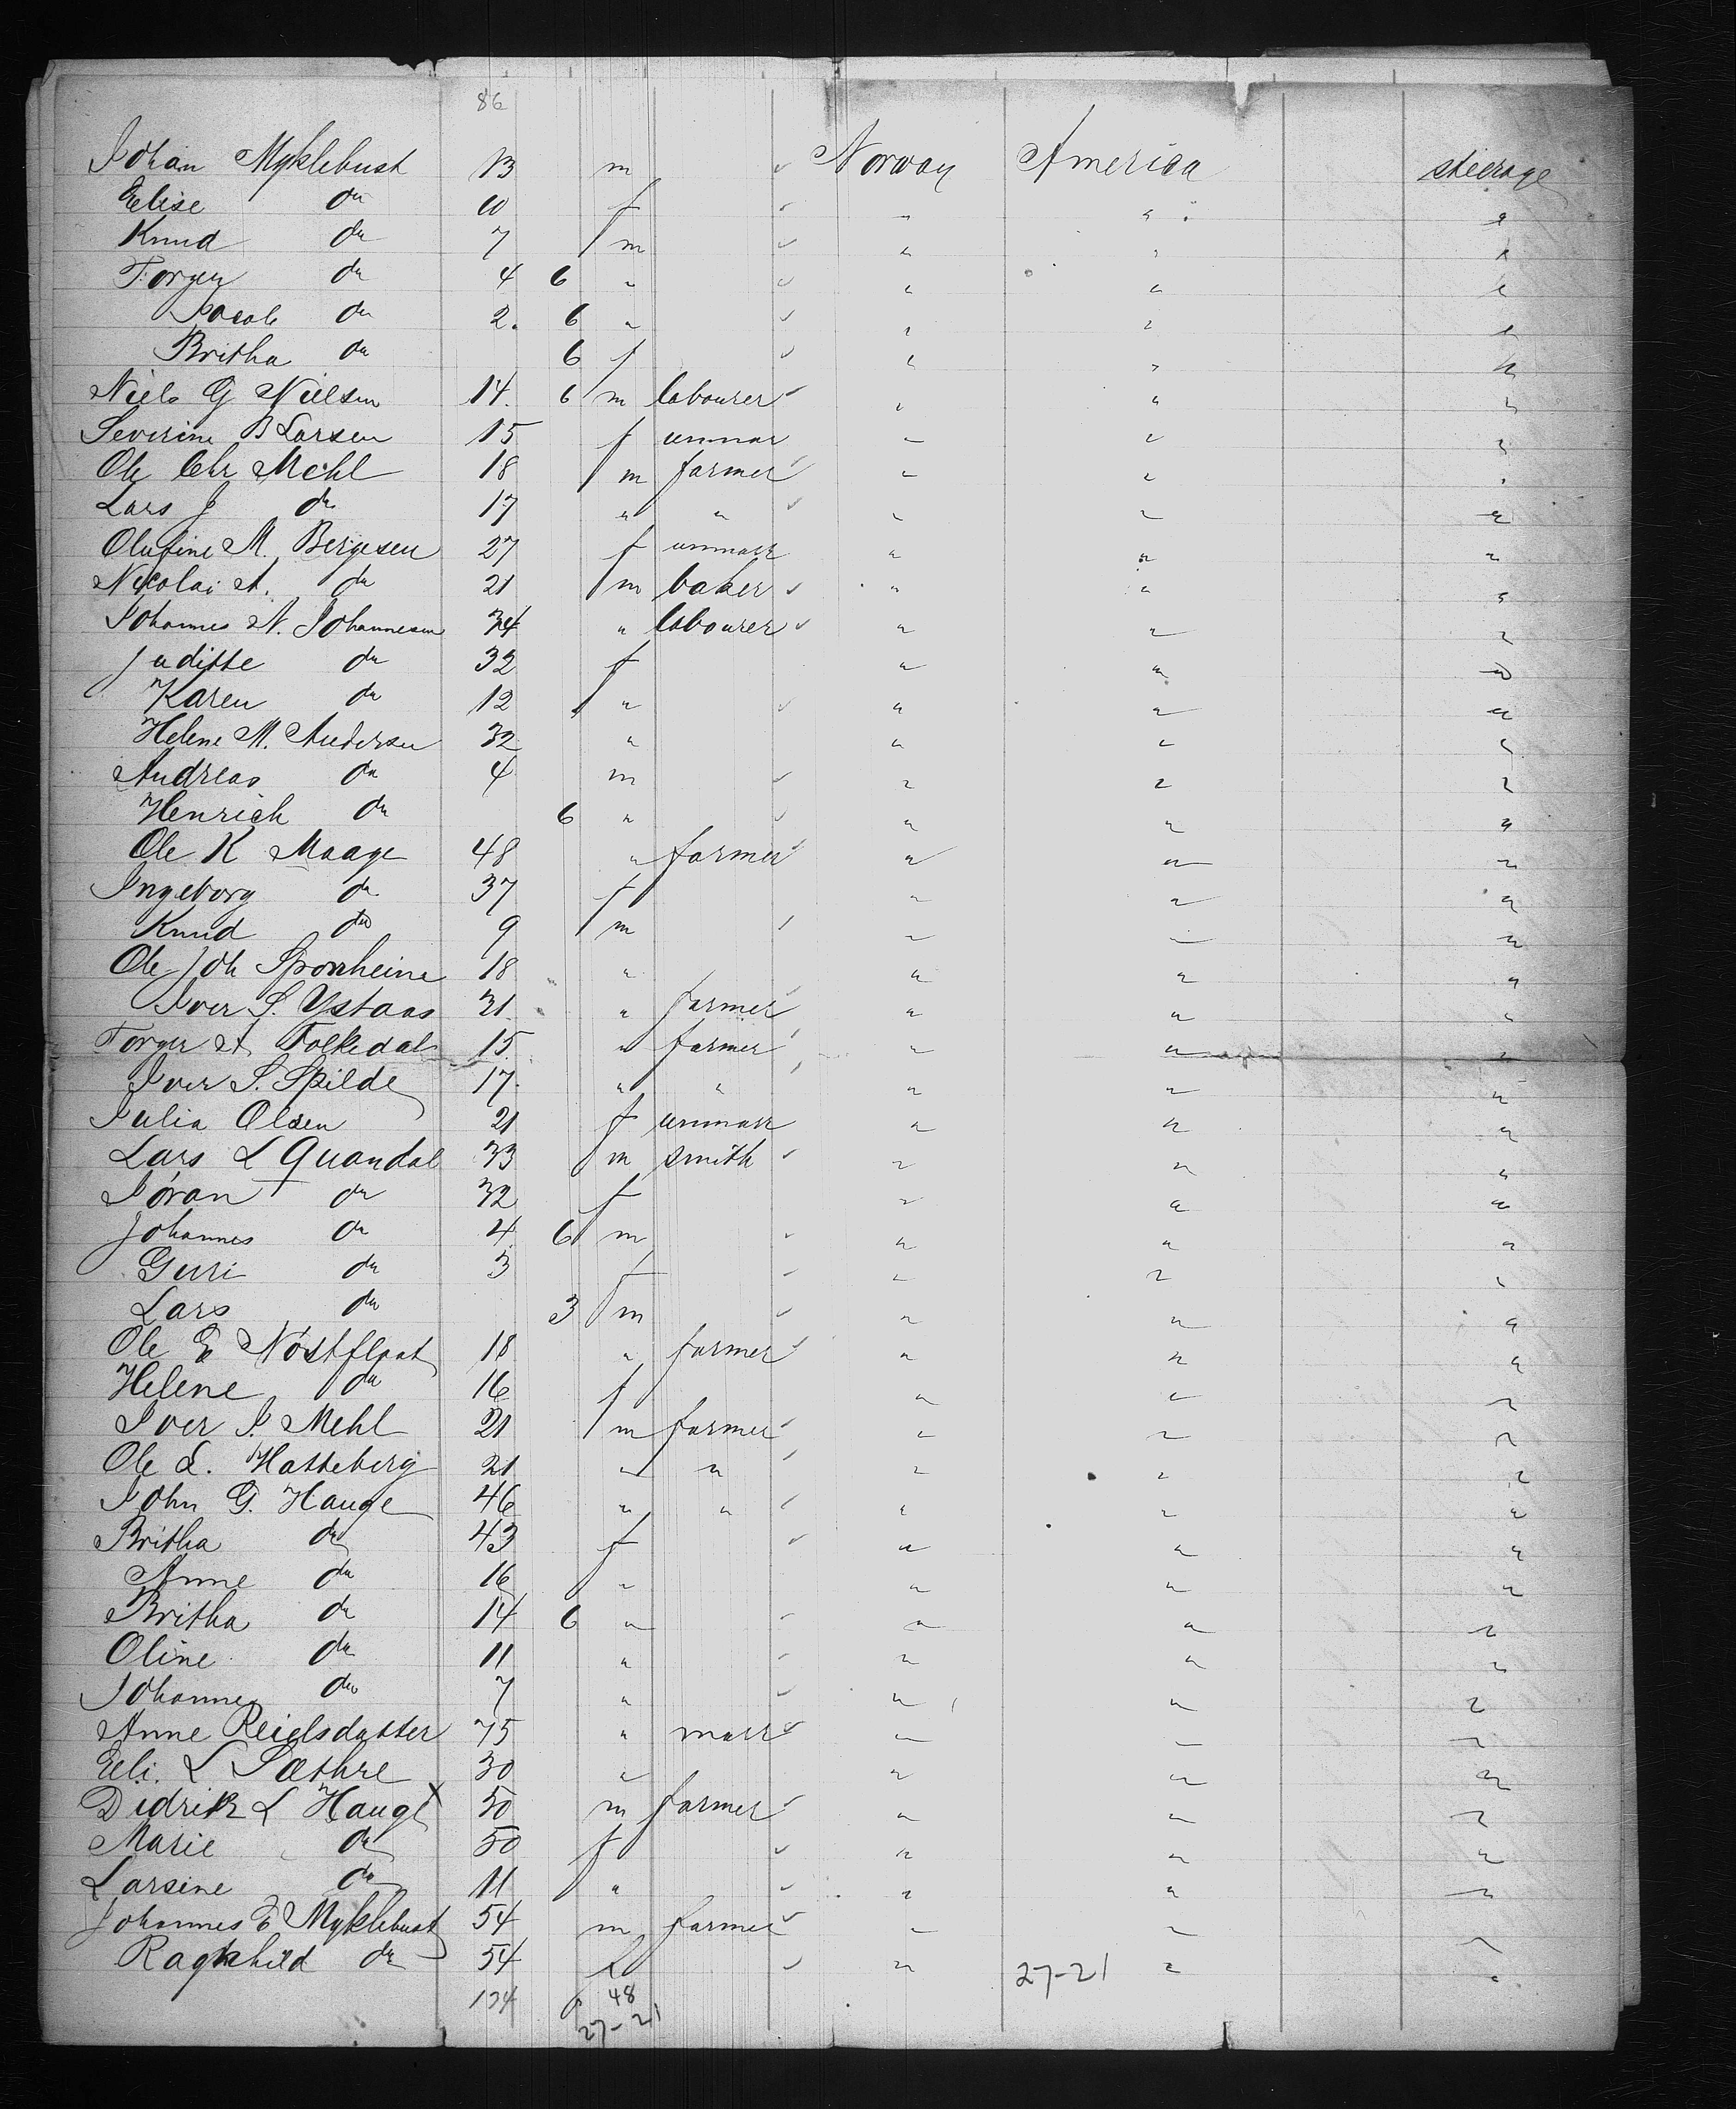 86
Johan Myklebust 13 m ✓ Norway America steerage
Elise do 10 f ✓ " " "
Knud do 7 m ✓ " " "
Torger do 4 6 " ✓ " " "
Jacob do 2. 6 " ✓ " " "
Britha do 6 f ✓ " " "
Niels G Nielsen 14. 6 m labourer ✓ " " "
Severine B Larsen 15 f unmar " " "
Ole Chr Mehl 18 m farmer ✓ " " "
Lars J do 17 " " ✓ " " "
Olufine M. Bergesen 27 f unmarr " " "
Nicolai A. do 21 m baker ✓ " " "
Johannes N. Johannesen 34 " labourer ✓ " " "
Juditte do 32 f " " "
Karen do 12 " ✓ " " "
Helene M. Andersen 32 " " " "
Andreas do 4 m ✓ " " "
Henrich do 6 " ✓ " " "
Ole K Maage 48 " farmer ✓ " " "
Ingeborg do 37 f " " "
Knud do 9 m ✓ " " "
Ole Joh Sponheine 18 " " " "
Iver S. Ystaas 21. " farmer ✓ " " "
Torger A. Folkedal 15. " farmer ✓ " " "
Iver S. Spilde 17. " " ✓ " " "
Julia Olsen 21 f unmarr " " "
Lars L Quandal 33 m smith ✓ " " "
Jöran do 32 f " " "
Johannes do 4 6 m ✓ " " "
Guri do 3 f ✓ " " "
Lars do 3 m ✓ " " "
Ole E Nöstflaat 18 " farmer ✓ " " "
Helene do 16 f " " "
Iver I. Mehl 21 m farmer ✓ " " "
Ole L. Hatteberg 21 " " ✓ " " "
John G. Hauge 46 " " ✓ " " "
Britha do 43 f ✓ " " "
Anne do 16 " " " "
Britha do 14 6 " ✓ " " "
Oline do 11 " ✓ " " "
Johanne do 7 " ✓ " " "
Anne Reielsdatter 75 " marr ✓ " " "
Eli. L Sæthre 30 " " " "
Didrik L Haugl x 50 m farmer ✓ " " "
Marie do 50 f ✓ " " "
Larsine do 11 " ✓ " " "
Johannes E Myklebust 54 m farmer ✓ " " "
Ragnhild do 54 f ✓ " 27-21 " "
134 48
27-21